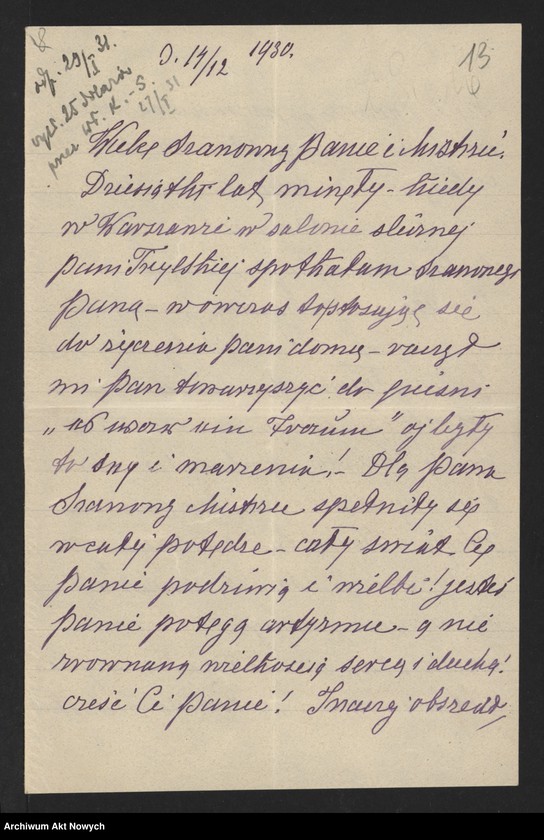 D. 14/12 1930.
13
odp. 29/I 31.
wys. 25 dolarów
przez 27/I 31
Wielce Szanowny Panie i Mistrzu!
Dziesiątki lat minęły – kiedy
w Warszawie w salonie słynnej
pani spotkałam Szanownego
Pana – wówczas stosując się
do życzenia pani domu – raczył
mi Pan towarzyszyć do pieśni
„es war ein Traum” oj były
to sny i marzenia! – Dla Pana
Szanowny Mistrzu spełniły się
w całej potędze – cały świat Cię
Panie podziwia i wielbi! jesteś
Panie potęgą artyzmu – a nie
zrównaną wielkością serca i ducha!
cześć Ci Panie! Inaczej obszedł
Archiwum Akt Nowych